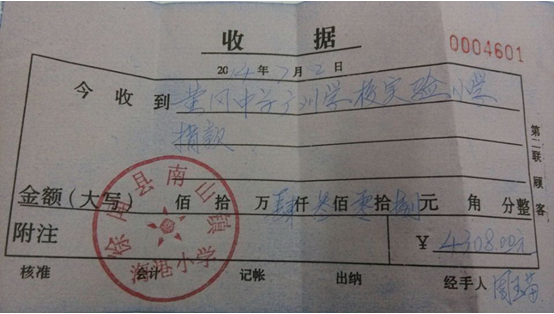 收据
0004601
2014年7月2日
今收到黄冈中学广州学校实验小学
捐款
第二联 顾客
金额(大写) 佰拾万肆仟叁佰零拾捌元角分整
附注 ¥4308.00元
徐闻县南山镇
海港小学
核准 会计 记帐 出纳 经手人